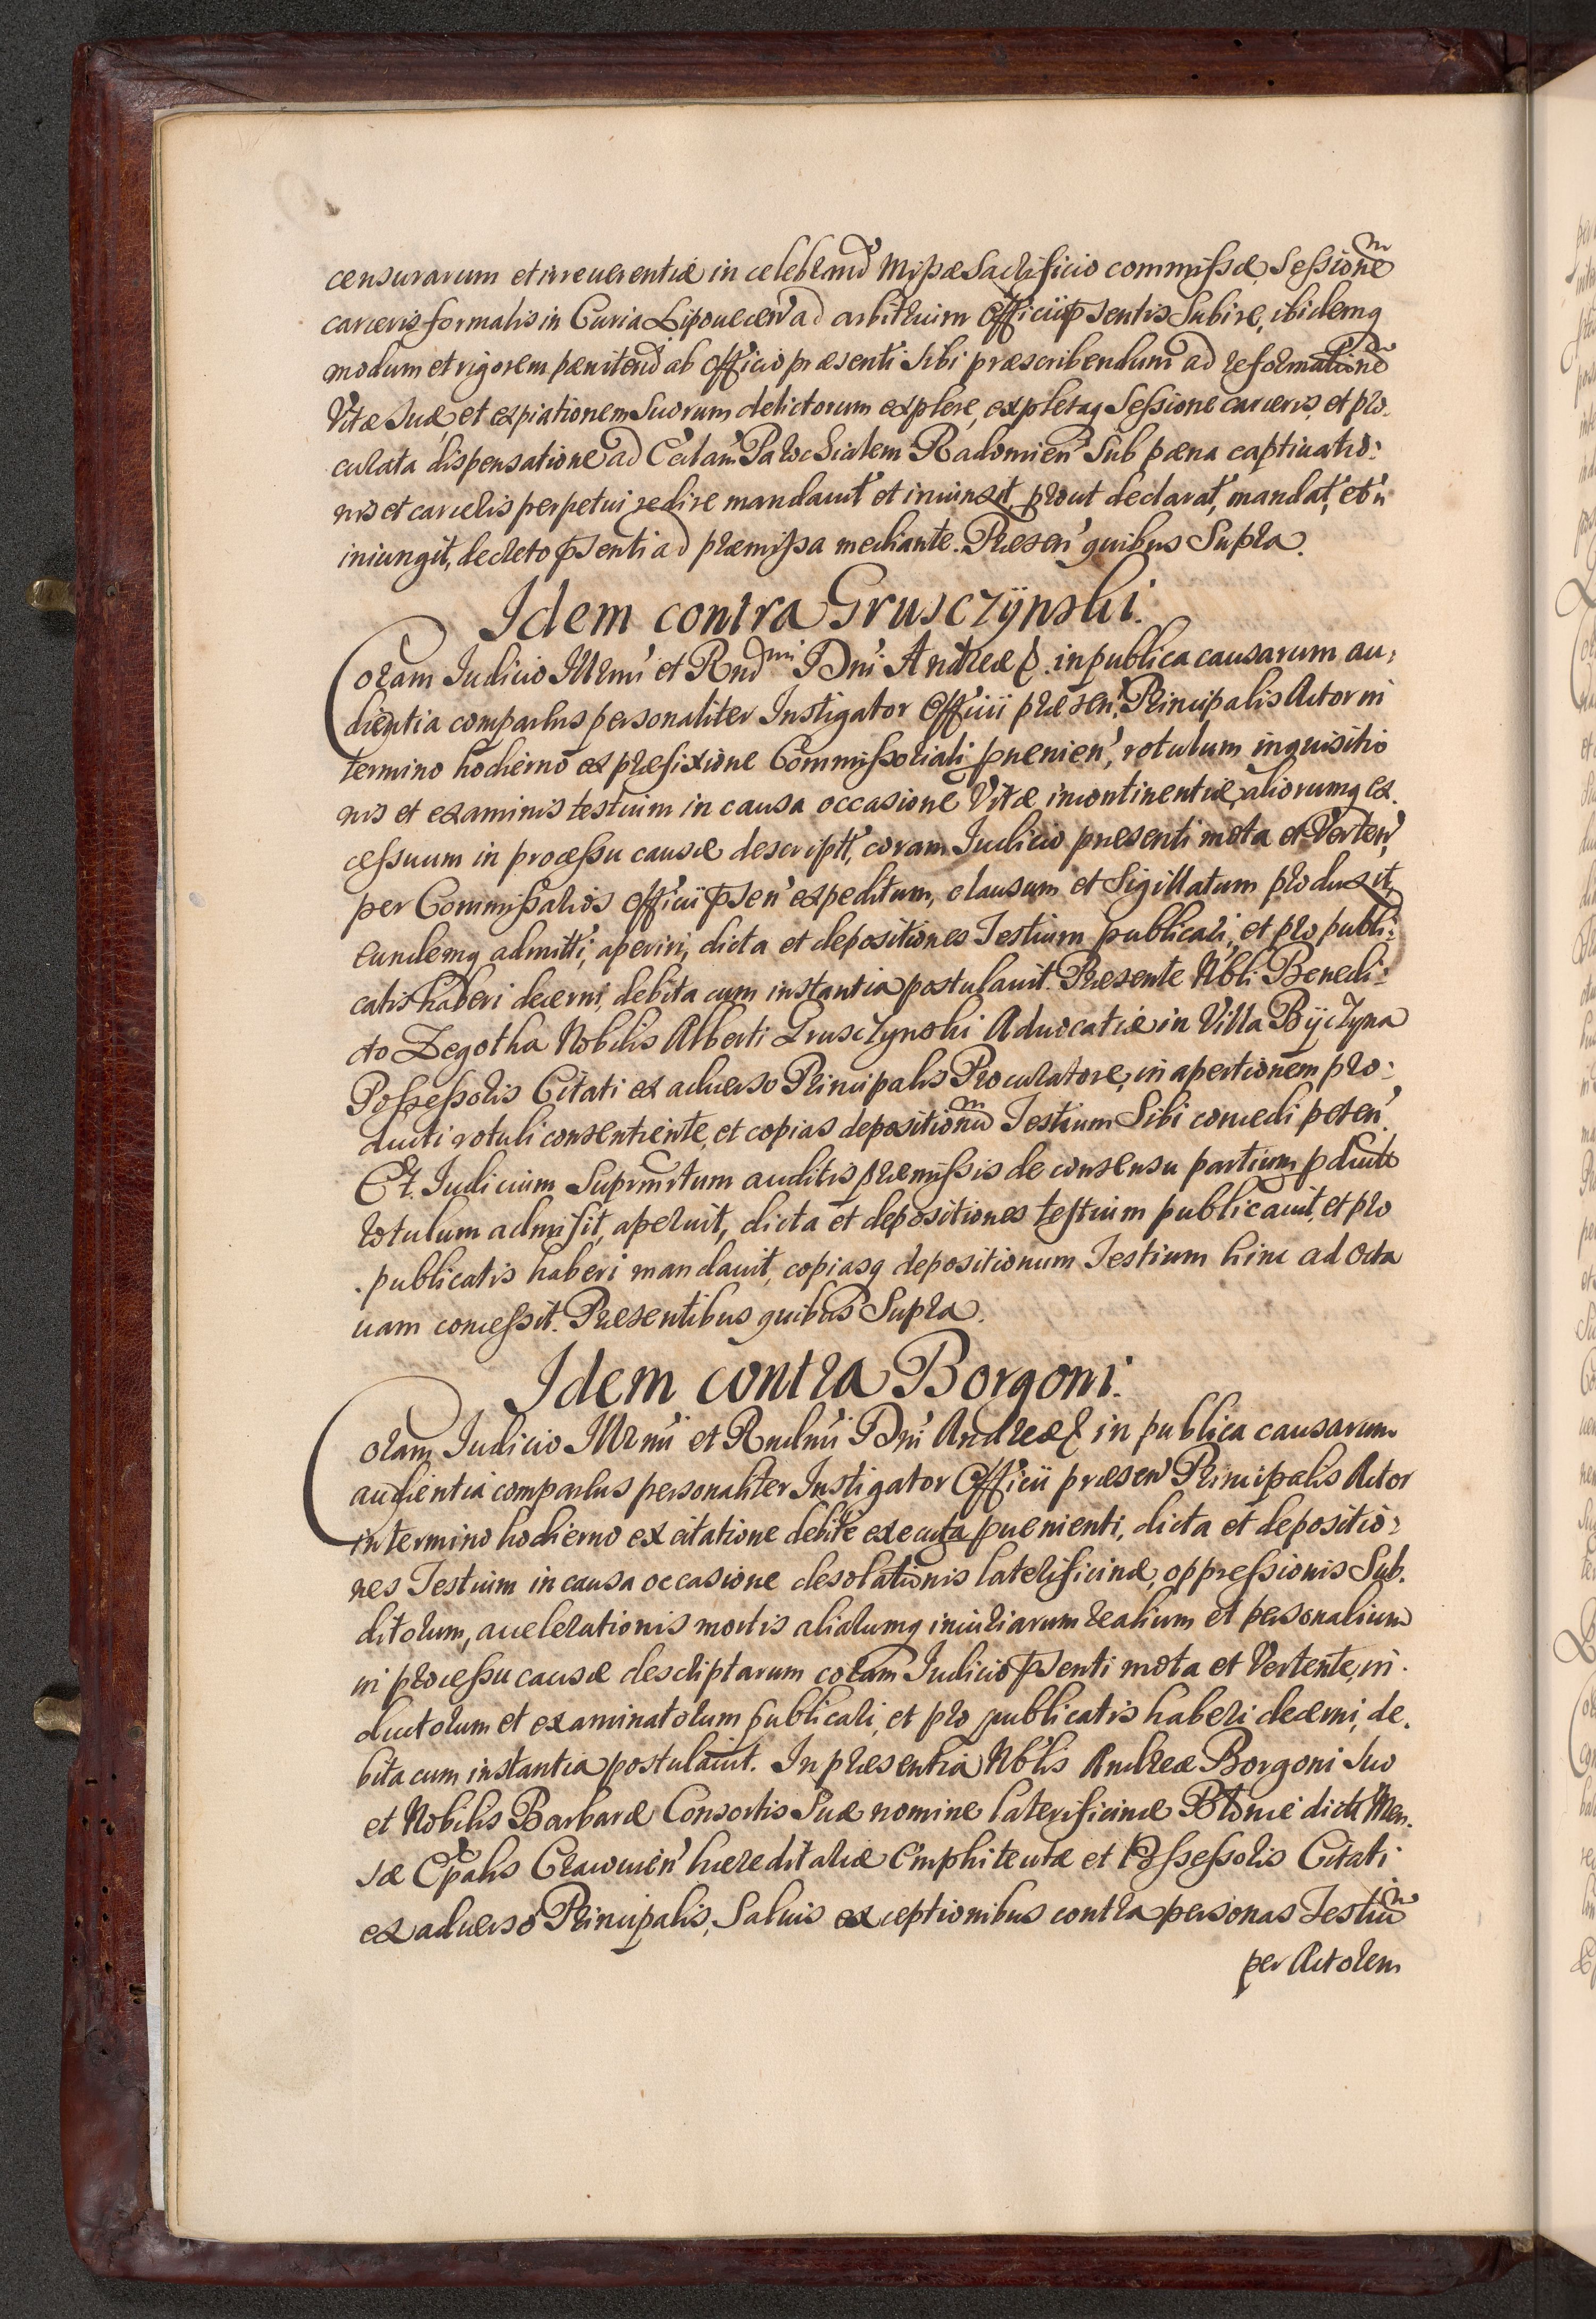 censurarum et irreuerentiæ in celebrand' Missæ Sacrificio commissæ, Sessione͠m
carceris formalis in Curia Lipouecen' ad arbitrium Officii p̃sentis Subire, ibidemq
modum et rigorem pænitend' ab Officio præsenti Sibi præscribendum ad reformatione͠m
Vitæ Suæ, et expiationem Suorum delictorum explere, expletaq Sessione carceris, et pro-
curata dispensatione ad Ccl'am Parochialem Radomien' Sub pæna captiuatio:
nis et carceris perpetui redire mandauit et iniunxit, prout declarat, mandat, et
iniungit, decreto p̃senti ad præmissa mediante. Præsen' quibus Supra.
Idem contra Grusczÿnski.
Coram Iudicio Illrmi et Rnd͠mi Dni Andreæ &. in publica causarum au:
dientia comparens personaliter Instigator Officii præsen' Principalis Actor in
termino hodierno ex præfixione Commissoriali p̱uenien', rotulum inquisitio
nis et examinis testium in causa occasione Vitæ incontinentiæ, aliorumq ex.
cessuum in processu causæ descript', coram Iudicio præsenti mota et Verten'
per Commissarios Officii p̃sen' expeditum, clausum et Sigillatum produxit,
eundemq admitti, aperiri, dicta et depositiones Testium publicari, et pro publi:
catis haberi decerni, debita cum instantia postulauit. Præsente Nbli Benedi:
cto Zegotha Nobilis Alberti Grusczynski Aduocatiæ in Villa Byczyna
Possessoris Citati ex aduerso Principalis Procuratore, in apertionem pro:
ducti rotuli consentiente, et copias depositionu͠m Testium Sibi concedi peten'.
Et Iudicium Suprmrtum auditis præmissis de consensu partium p̱duct'
rotulum admisit, aperuit, dicta et depositiones testium publicauit, et pro
publicatis haberi mandauit, copiasq depositionum Testium hinc ad octa
uam concessit. Præsentibus quibus Supra.
Idem contra Borgoni.
Coram Iudicio Illrmi et Rndmi Dni Andreæ & in publica causarum
audientia comparens personaliter Instigator Officii præsen' Principalis Actor
in termino hodierno ex citatione debite executa p̱uenienti, dicta et depositio:
nes Testium in causa occasione desolationis laterificinæ, oppressionis Sub.
ditorum, accelerationis mortis aliarumq iniuriarum realium et personalium
in processu causæ descriptarum coram Iudicio p̃senti mota et Vertente, in.
ductorum et examinatorum publicari, et pro publicatis haberi decerni, de.
bita cum instantia postulauit. In præsentia Nblis Andreæ Borgoni Suo
et Nobilis Barbaræ Consortis Suæ nomine laterificinæ dicti Men.
sæ Ep̃alis Cracouien' hæreditariæ Emphiteutæ et Possessoris Citati
ex aduerso Principalis, Saluis exceptionibus contra personas Testiu͠m
per Actorem